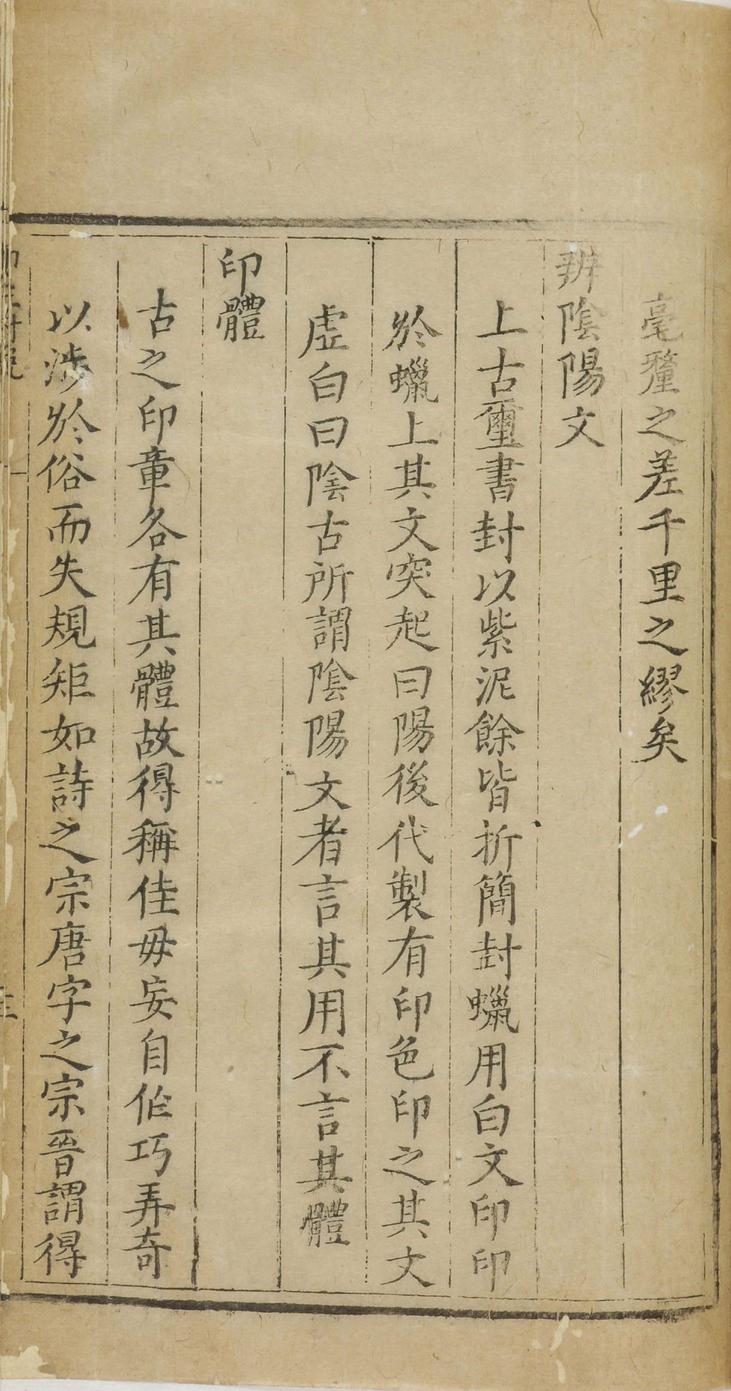 毫釐之差千里之繆矣
辨陰陽文
上古璽書封以紫泥餘皆折簡封蠟用白文印印
於蠟上其文突起曰陽後代製有印色印之其文
虛白曰陰古所謂陰陽文者言其用不言其體
印體
古之印章各有其體故得稱佳毋妄自作巧弄奇
以涉於俗而失規矩如詩之宗唐字之宗晉謂得